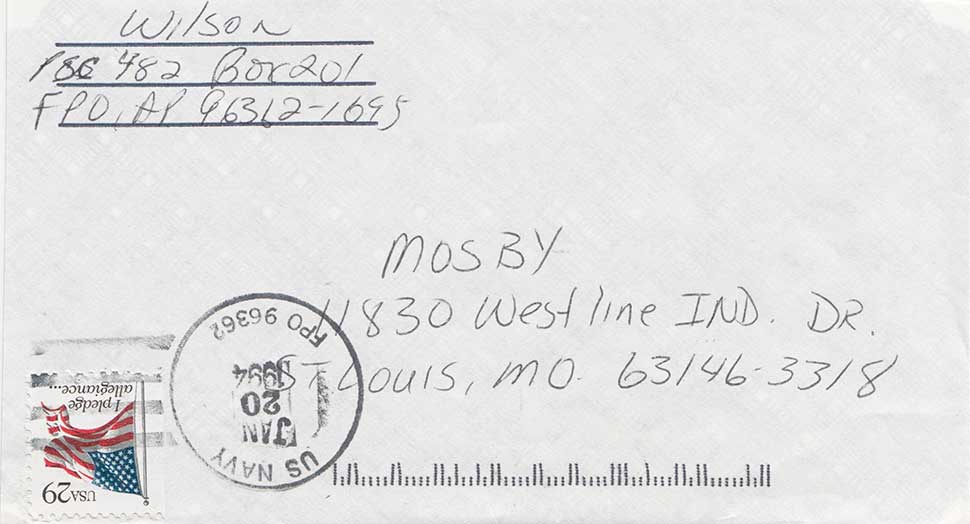 Wilson
PSC 482 Box 201
FPO, AP 96362-1695
MOSBY
11830 Westline IND. DR.
ST Louis, MO. 63146-3318
US NAVY
JAN
20
1994
FPO 96362
I pledge
allegiance...
USA 29